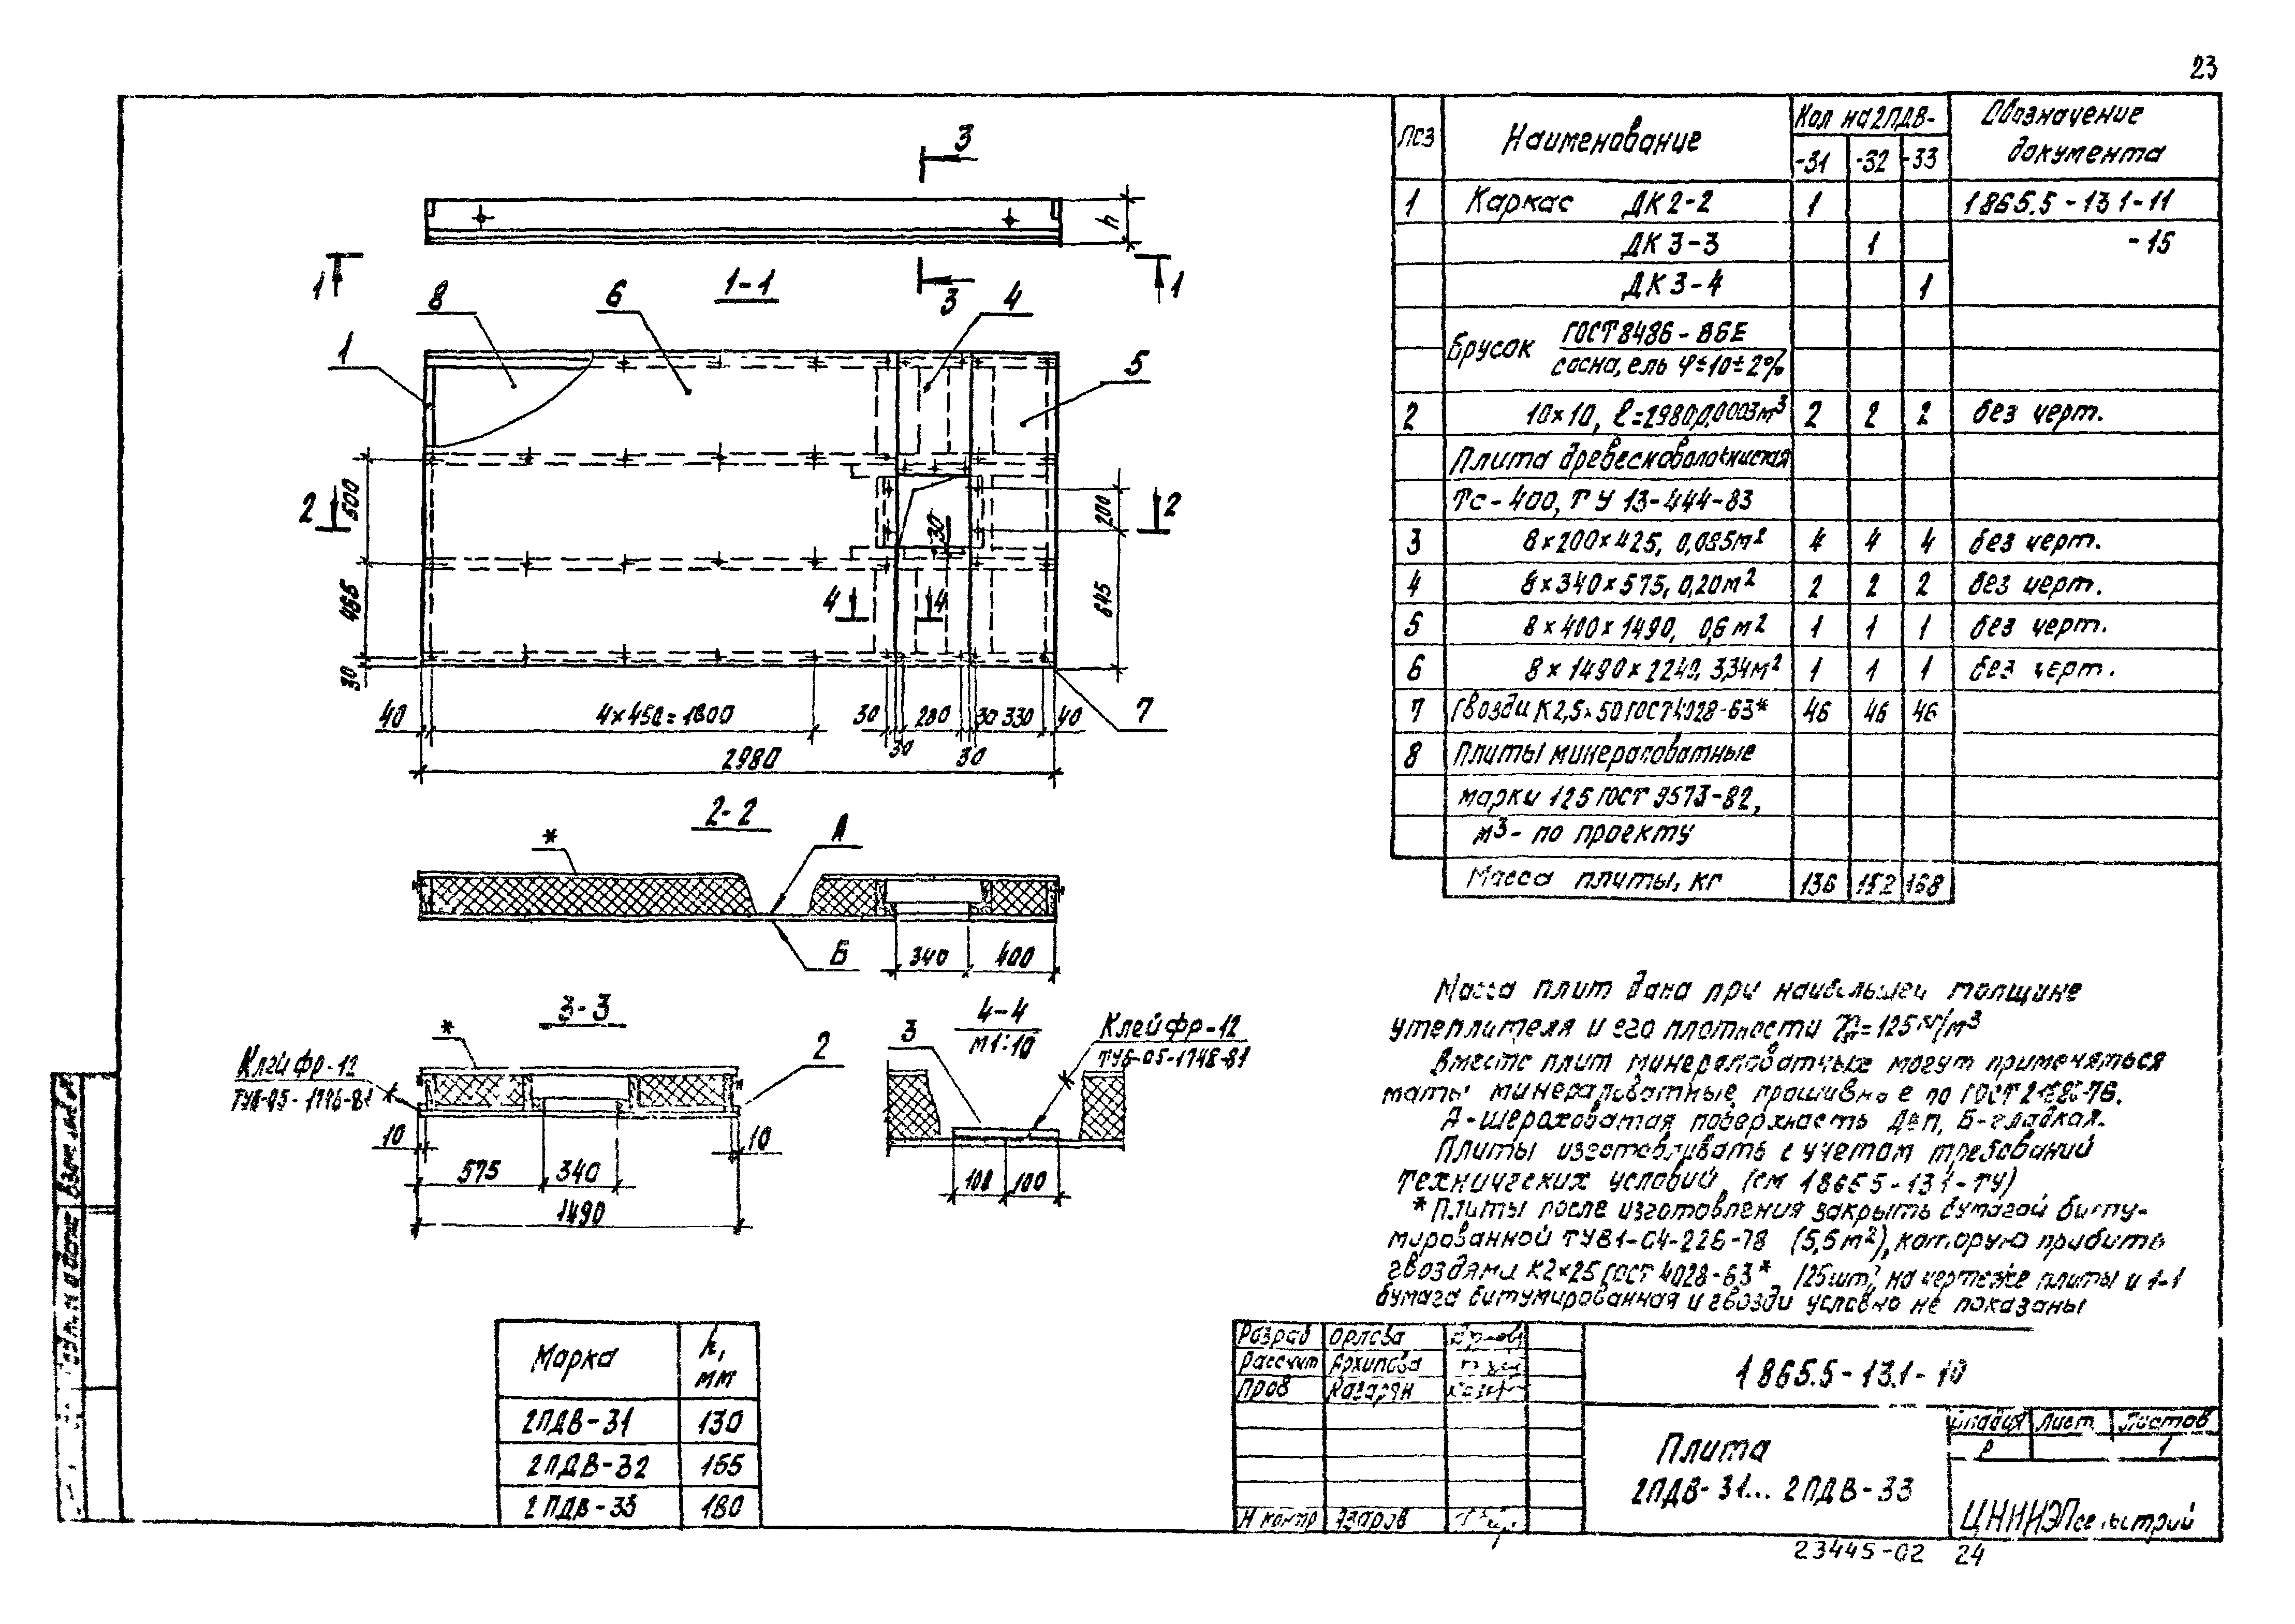 23
3
h
1
1-1
3
1
8
6
4
1
5
2
500
465
30
30
200
645
2
4
4
40
4×450=1800
30
30
280
30
30
330
40
7
2980
2-2
*
А
Б
340
400
3-3
*
Клей фр-12
2
10
10
575
340
1490
4-4
М1:10
3
Клей фр-12
ТУ6-05-1748-81
100
100
Марка
h, мм
2ПДВ-31 130
2ПДВ-32 155
2ПДВ-33 180
Поз Наименование Кол на 2ПДВ- Обозначение документа
-31 -32 -33
1 Каркас ДК2-2 1 1865.5-13 1-11
ДК3-3 1 -15
ДК3-4 1
Брусок ГОСТ8486-86Е
сосна, ель φ≤10±2%
2 10×10, ℓ=2980,0.0003м³ 2 2 2 без черт.
Плита древесноволокнистая
Тс-400, ТУ 13-444-83
3 8×200×425, 0,085м² 4 4 4 без черт.
4 8×340×575, 0,20м² 2 2 2 без черт.
5 8×400×1490, 0,6м² 1 1 1 без черт.
6 8×1490×2240, 3,34м² 1 1 1 без черт.
7 Гвозди К2,5×50 ГОСТ4028-63* 46 46 46
8 Плиты минераловатные
марки 125 ГОСТ 9573-82,
м³- по проекту
Масса плиты, кг 136 152 168
Масса плит дана при наибольшей толщине
утеплителя и его плотности =125 кг/м³
Вместо плит минераловатных могут применяться
маты минераловатные прошивные по ГОСТ
А-шероховатая поверхность ДВП, Б-гладкая.
Плиты изготавливать с учетом требований
технических условий (см 1865 5-13 1-ТУ)
*Плиты после изготовления закрыть бумагой биту-
мированной (5,5м²), которую прибить
гвоздями К2×25 ГОСТ 4028-63*, (25шт) на чертеже плиты и 1-1
бумага битумированная и гвозди условно не показаны
Разраб Орлова
Рассчит Архипова
Пров Казарян
Н контр Азаров
1 865.5-13.1-10
Плита
2ПДВ-31... 2ПДВ-33
Стадия Лист Листов
Р 1
ЦНИИЭПсельстрой
23445-02 24